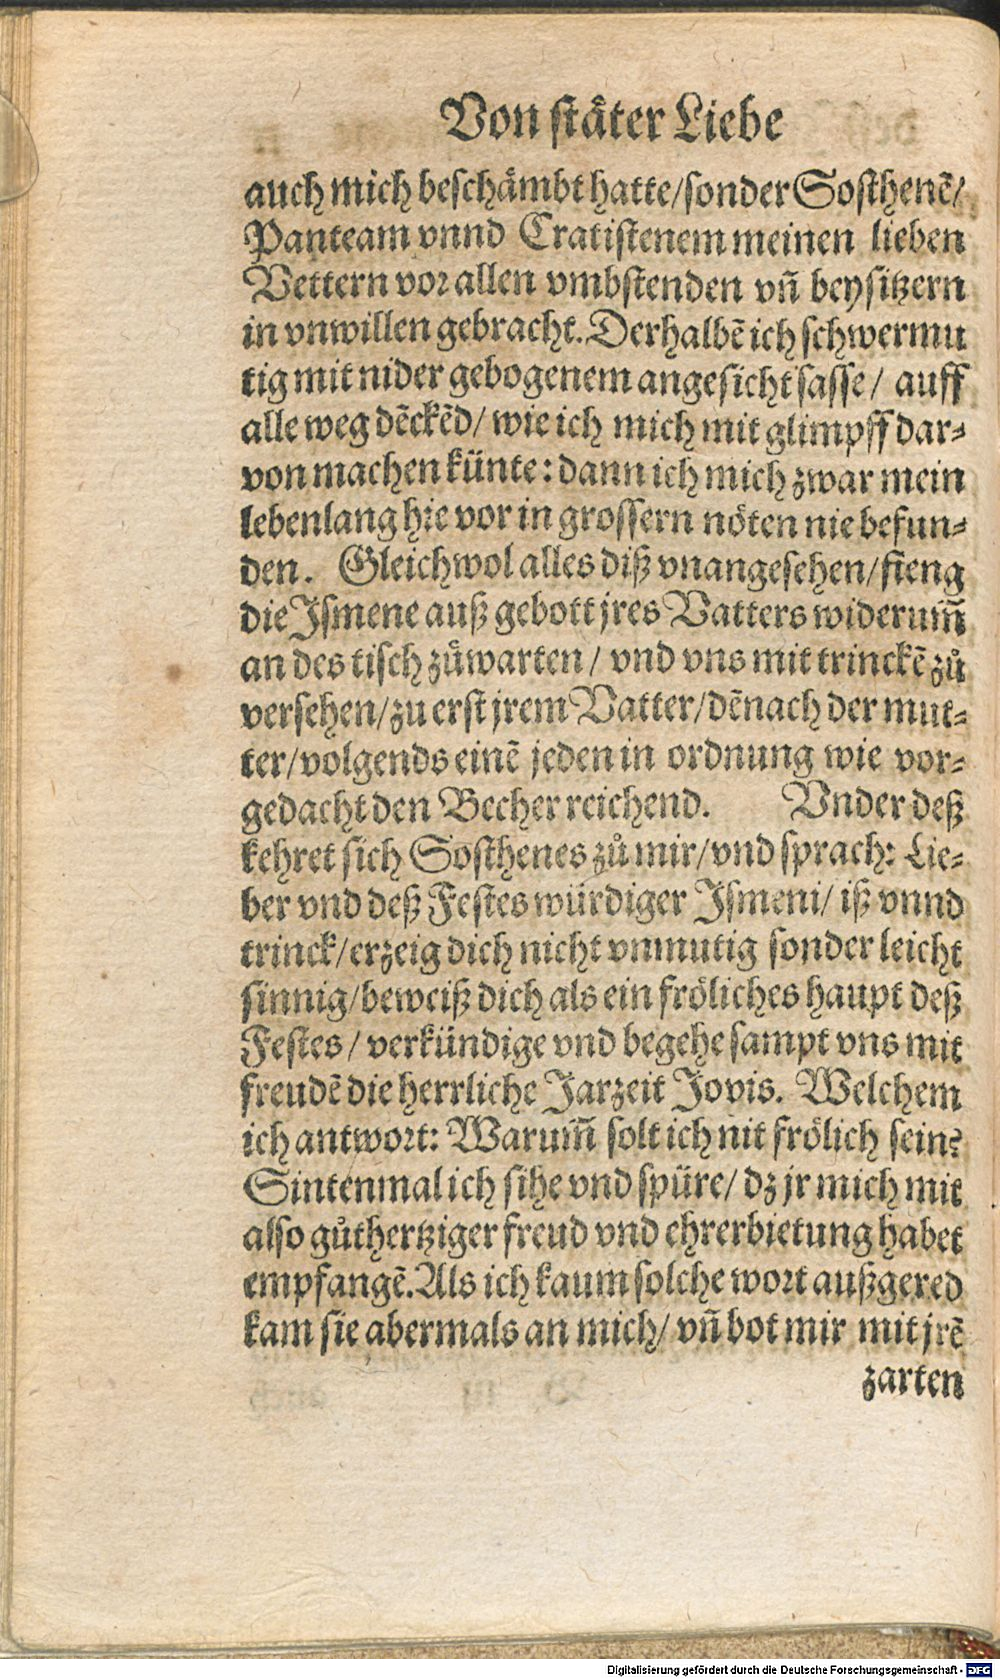 Von stäter Liebe
auch mich beschämbt hatte/sonder Sosthenē/
Panteam vnnd Cratistenem meinen lieben
Vettern vor allen vmbstenden vñ beysitzern
in vnwillen gebracht. Derhalbē ich schwermu
tig mit nider gebogenem angesicht sasse / auff
alle weg dēckēd/ wie ich mich mit glimpff dar-
von machen künte: dann ich mich zwar mein
lebenlang hie vor in grossern nöten nie befun-
den. Gleichwol alles diß vnangesehen/fieng
die Ismene auß gebott jres Vatters widerum̃
an des tisch zůwarten / vnd vns mit trinckē zů
versehen/zu erst jrem Vatter/dēnach der mut-
ter/volgends einē jeden in ordnung wie vor-
gedacht den Becher reichend. Vnder deß
kehret sich Sosthenes zů mir/vnd sprach: Lie-
ber vnd deß Festes würdiger Ismeni/ iß vnnd
trinck/erzeig dich nicht vnmutig sonder leicht
sinnig/beweiß dich als ein fröliches haupt deß
Festes / verkündige vnd begehe sampt vns mit
freudē die herrliche Jarzeit Jovis. Welchem
ich antwort: Warum̃ solt ich nit frölich sein?
Sintenmal ich sihe vnd spüre/ dz jr mich mit
also gůthertziger freud vnd ehrerbietung habet
empfangē. Als ich kaum solche wort außgered
kam sie abermals an mich/ vñ bot mir mit jrē
zarten
Digitalisierung gefördert durch die Deutsche Forschungsgemeinschaft - DFG